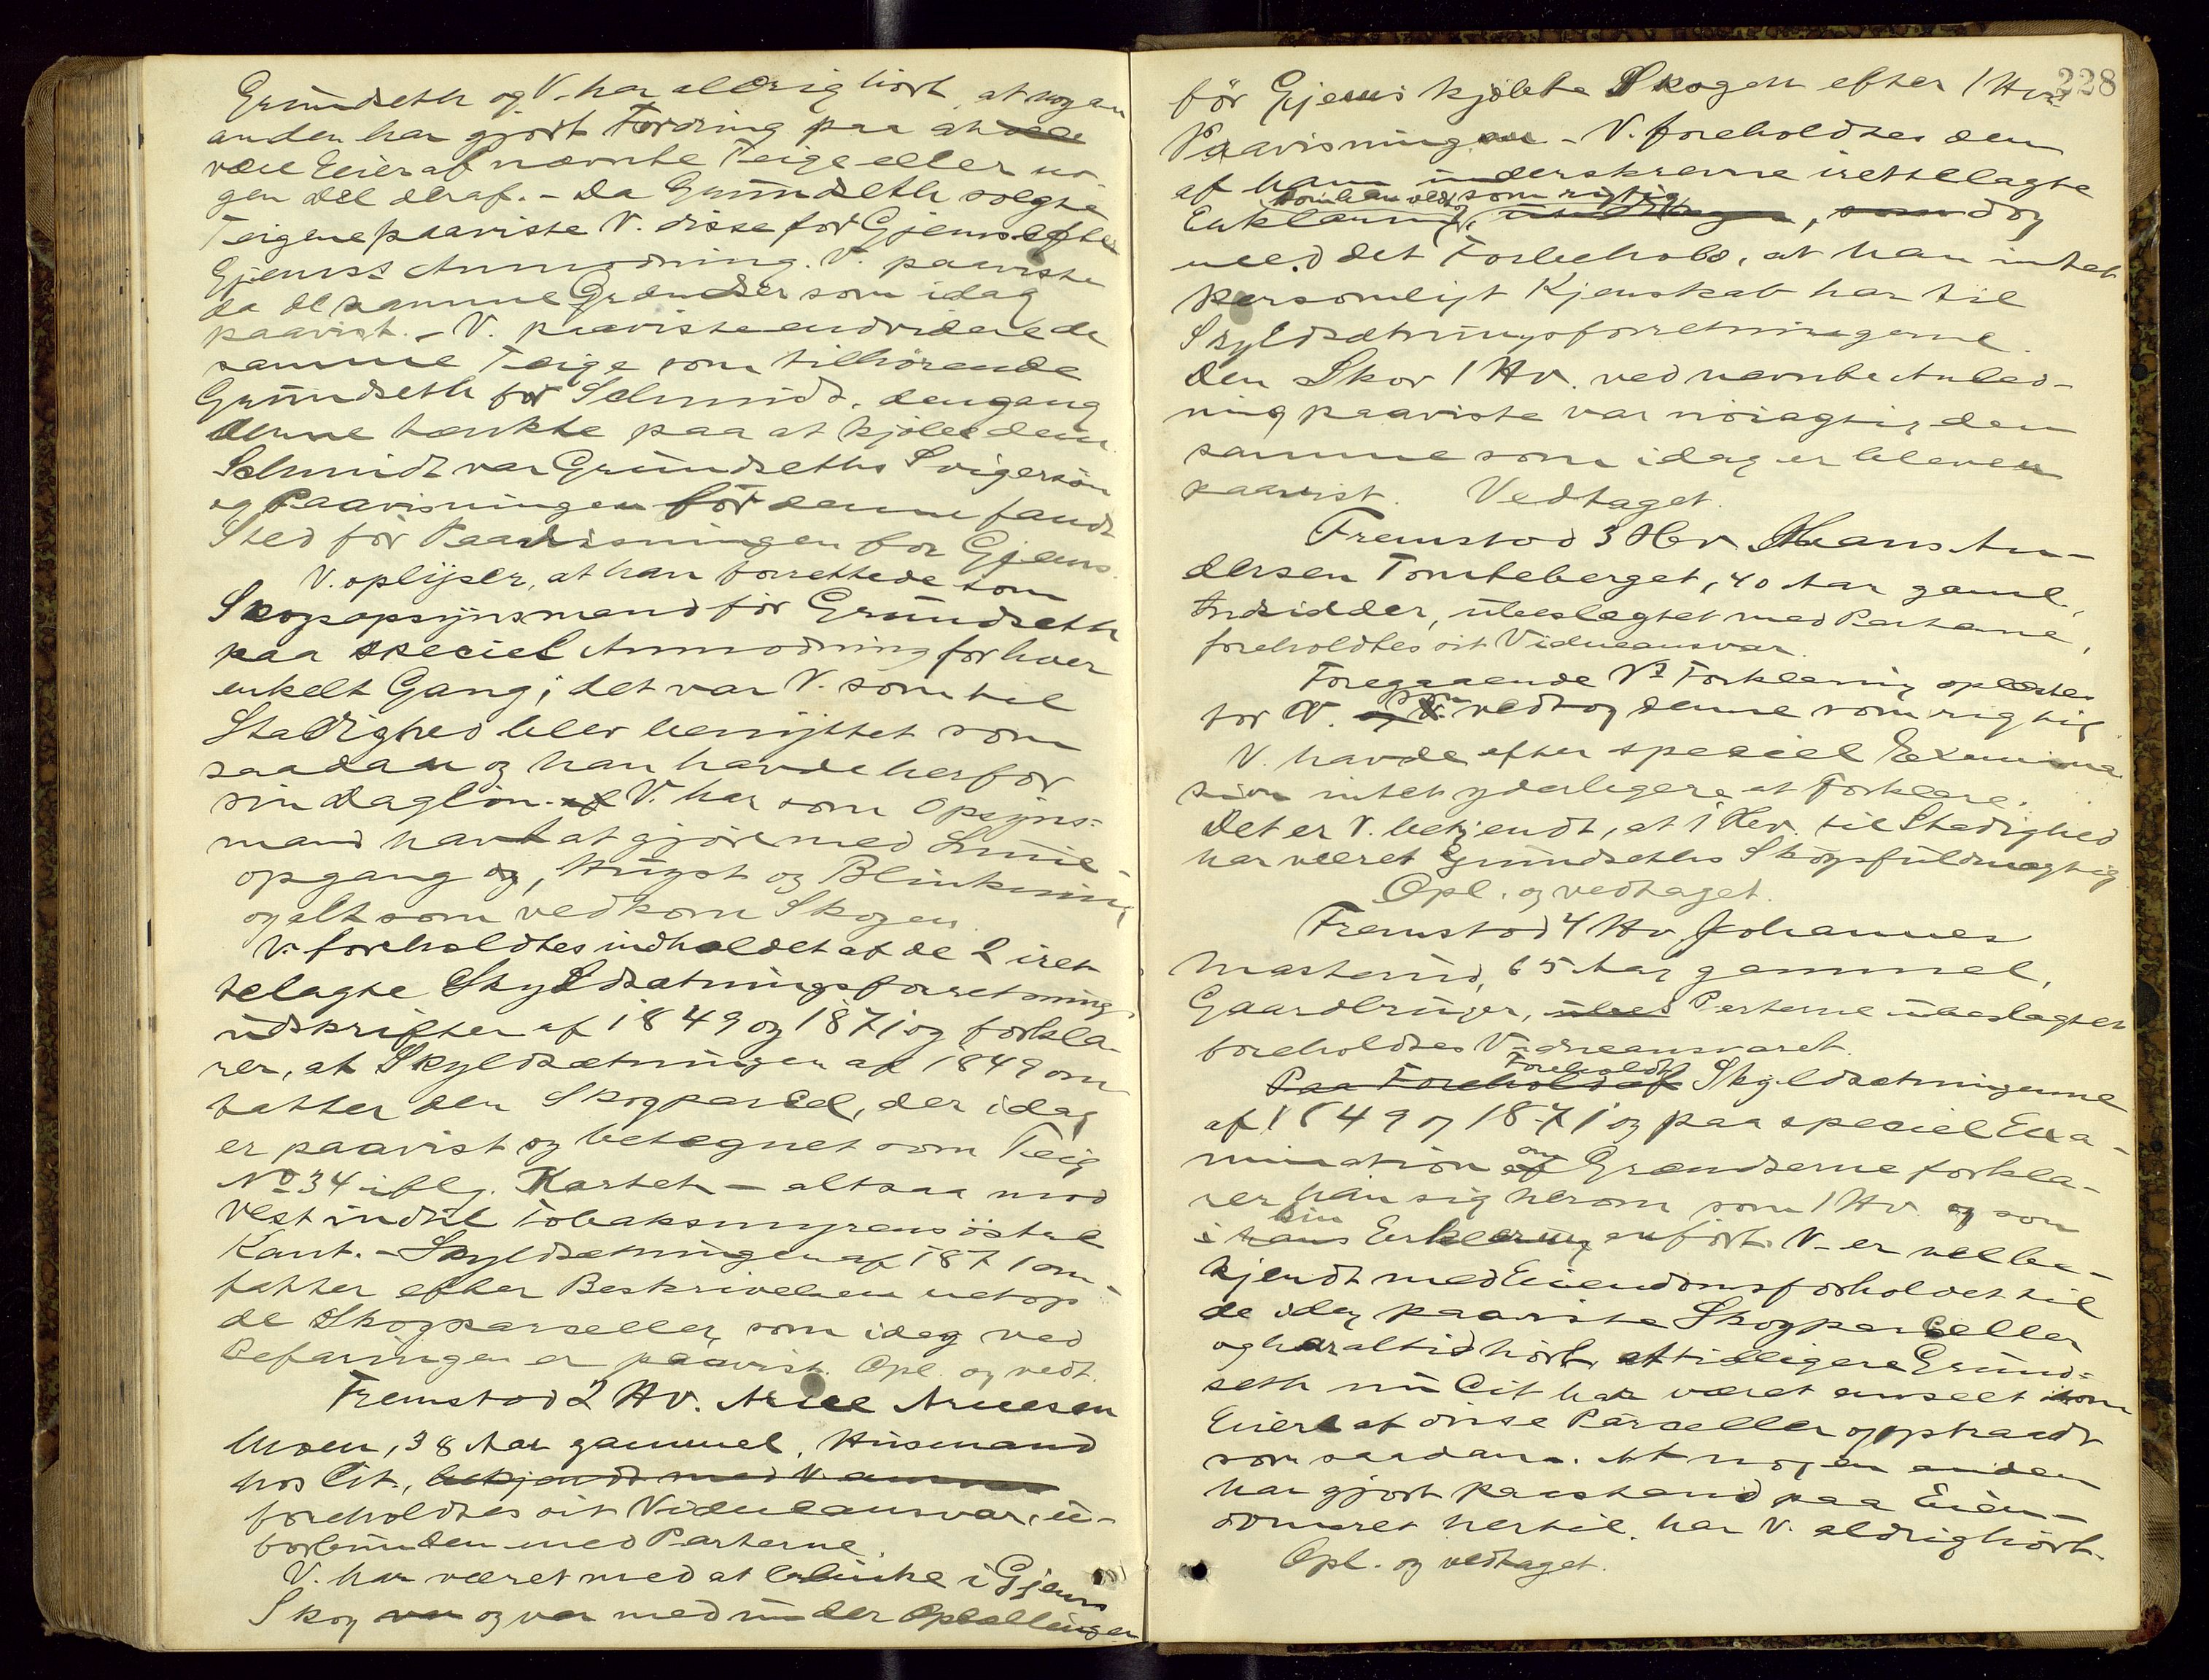 Grundseth og V. har aldrig hört, at nogen
anden har gjort Fordring paa at ~~være~~
være Eier af nævnte Teige eller no-
gen del deraf. - Da Grundseth solgte
Teigene paaviste V. disse for Gjems efter
Gjems's Anmodning. V. paaviste
da de samme Grændser som idag
paavist. - V. paaviste endvidere de
samme Teige som tilhörende
Grundseth for Schmidt, dengang
denne tænkte paa at kjöbe dem.
Schmidt var Grundseths Svigersön
og Paavisningen for denne fandt
Sted för Paavisningen for Gjems.
V. oplyser, at han forrettede som
Skogopsynsmand för Grundseth
paa speciel Anmodning for hver
enkelt Gang; det var V. som til
Stadighed blev benyttet som
saadan og han havde herfor
sin daglön. V. har som Opsyns-
mand havt at gjöre med Linie-
opgang ~~og~~, Hugst og Blinkning
og alt som vedkom Skogen.
V. foreholdtes indholdet af de 2 iret-
telagte Skyldsætningsforretnings
udskrifter af 1849 og 1871 og forkla-
rer, at Skyldsætningen af 1849 om
fatter den Skogparcel, der idag
er paavist og betegnet som Teig
No 34 iflg. Kartet - altsaa mod
Vest indtil Tobaksmyrens östre
Kant. - Skyldsætningen af 1871 om-
fatter efter Beskrivelsen netop
de Skogparceller, som idag ved
Befaringen er paavist. Opl. og vedt.
Fremstod 2 Hv. Arne Arnesen
Moen, 38 Aar gammel, Husmand
hos Cit., ~~bekjendt med V. ansvar~~
foreholdtes sit Vidneansvar, u-
forbunden med Parterne.
V. har været med at blinke i Gjems
Skog ~~var~~ og var med under Optællingen
228
för Gjems kjöbte Skogen efter 1 Hvs
Paavisning - V. foreholdtes den
af ham underskrevne irettelagte
som han vedtog som rigtig
Erklæring, dog
med det Forbehold, at han intet
personligt Kjenskab har til
Skyldsætningsforretningerne.
Den Skov 1 Hv. ved nævnte Anled-
ning paaviste var nöiagtig den
samme som idag er bleven
paavist. Vedtaget.
Fremstod 3 Hv Hans An-
dersen Tomteberget, 40 Aar gaml.,
Indsidder, ubeslægtet med Parterne,
foreholdtes sit Vidneansvar.
Foregaaende Vs Forklaring oplæstes
som
for V. ~~og V.~~ vedtog denne som rigtig
V. havde efter speciel Examina-
sion intet yderligere at forklare.
Det er V. bekjendt, at 1 Hv. til Stadighed
har været Grundseths Skogsfuldmægtig
Opl. og vedtaget.
Fremstod 4 Hv Johannes
Masterud, 65 Aar gammel,
Gaardbruger, ~~ubes~~ Parterne ubeslægtet
foreholdtes Vidneansvaret.
Foreholdt
~~Paa Foreholdaf~~ Skyldsætningerne
af 1849 og 1871 og paa speciel Exa-
om
mination ~~af~~ Grændserne forkla-
rer han sig herom som 1 Hv. og som
sin
i ~~hans~~ Erklæring anfört. V. er vel be-
kjendt med Eiendomsforholdet til
de idag paaviste Skogparceller
og har altid hört, at tidligere Grund-
seth nu Cit har været anseet som
Eiere af disse Parceller og optraadt
som saadan. At nogen anden
har gjort Paastand paa Eien-
domsret hertil, har V. aldrig hört.
Opl. og vedtaget.